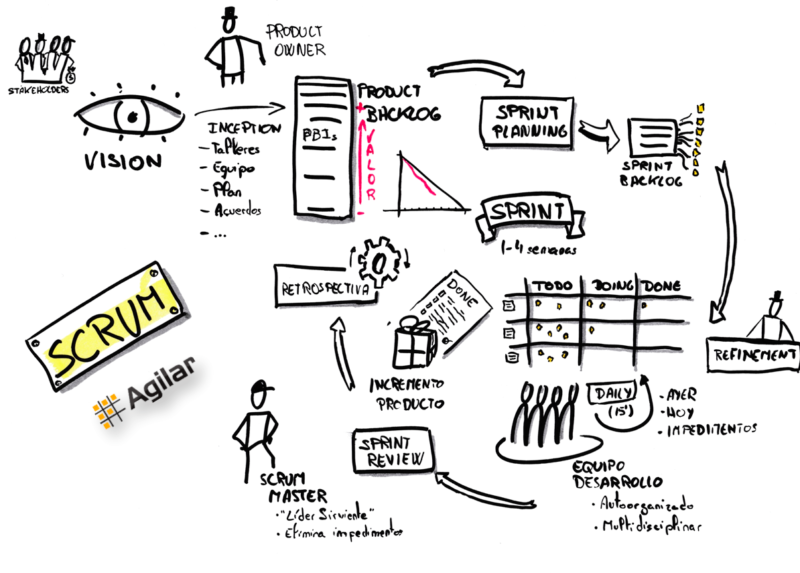 STAKEHOLDERS
VISION
PRODUCT
OWNER
INCEPTION
- Talleres
- Equipo
- Plan
- Acuerdos
- ...
PBIs
PRODUCT
BACKLOG
+
VALOR
-
SPRINT
PLANNING
SPRINT
BACKLOG
SPRINT
1-4 semanas
TODO DOING DONE
REFINEMENT
DAILY
(15')
- AYER
- HOY
- IMPEDIMENTOS
EQUIPO
DESARROLLO
• Autoorganizado
• Multidisciplinar
SPRINT
REVIEW
DONE
INCREMENTO
PRODUCTO
RETROSPECTIVA
SCRUM
MASTER
• "Líder Sirviente"
• Elimina impedimentos
SCRUM
Agilar